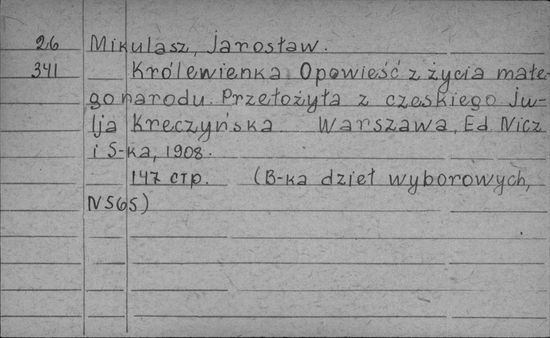 26 Mikulasz, Jarosław.
341 Królewienka Opowieść z życia małe-
go narodu. Przełożyła z czeskiego Ju-
lja Kreczyńska Warszawa, Ed. Nicz
i S-ka, 1908.
147 стр. (B-ka dzieł wyborowych,
N 565)